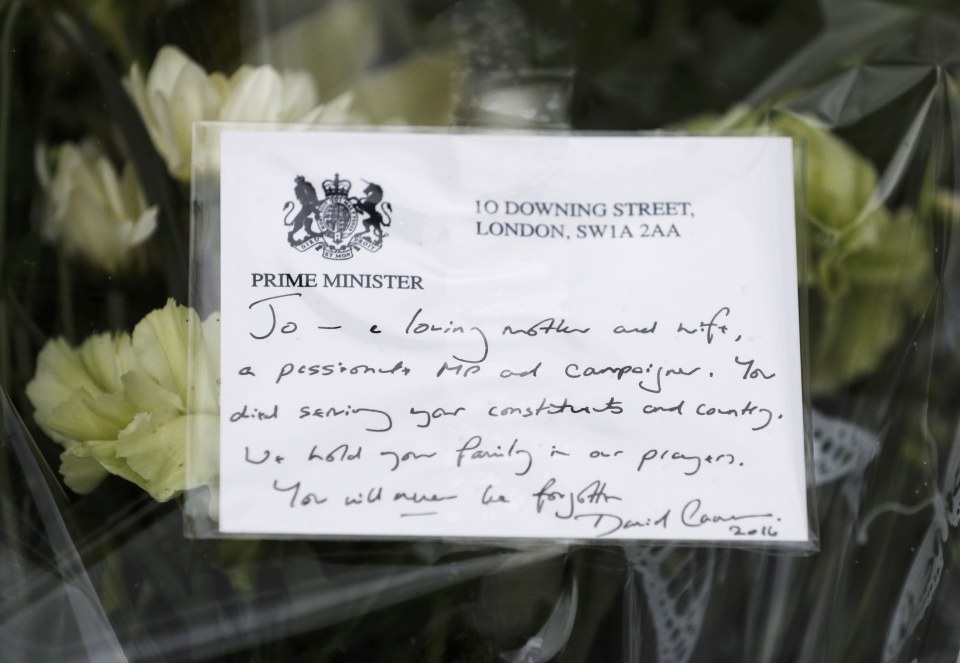 10 DOWNING STREET,
LONDON, SW1A 2AA
PRIME MINISTER
Jo – a loving mother and wife,
a passionate MP and campaigner. You
died serving your constituents and country.
We hold your family in our prayers.
You will never be forgotten
David Cameron.
2016